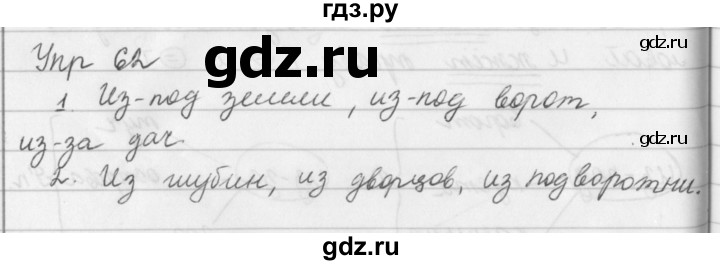 гдз.ру
Упр 62
gdz.ru
1. Из-под земли, из-под ворот,
из-за дач.
2. Из глубин, из дворцов, из подворотни.
gdz.ru